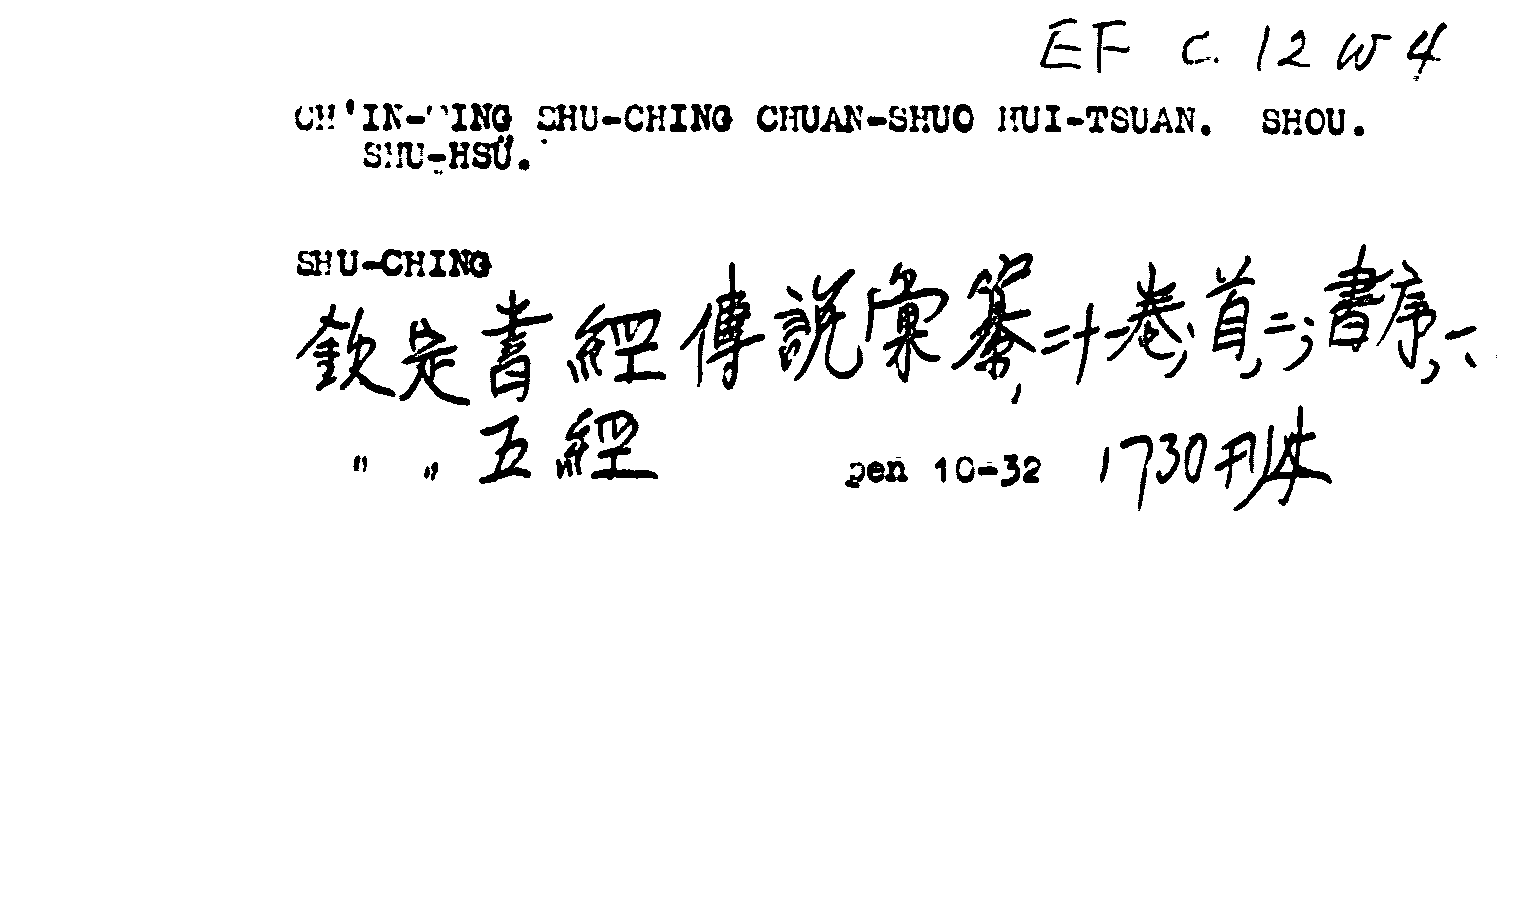 EF C. 12 W 4
CH'IN-TING SHU-CHING CHUAN-SHUO HUI-TSUAN. SHOU.
SHU-HSÜ.
SHU-CHING
欽定書經傳說彙纂,二十一卷,首,二;書序,一、
" " 五經 pen 10-32 1730刊本